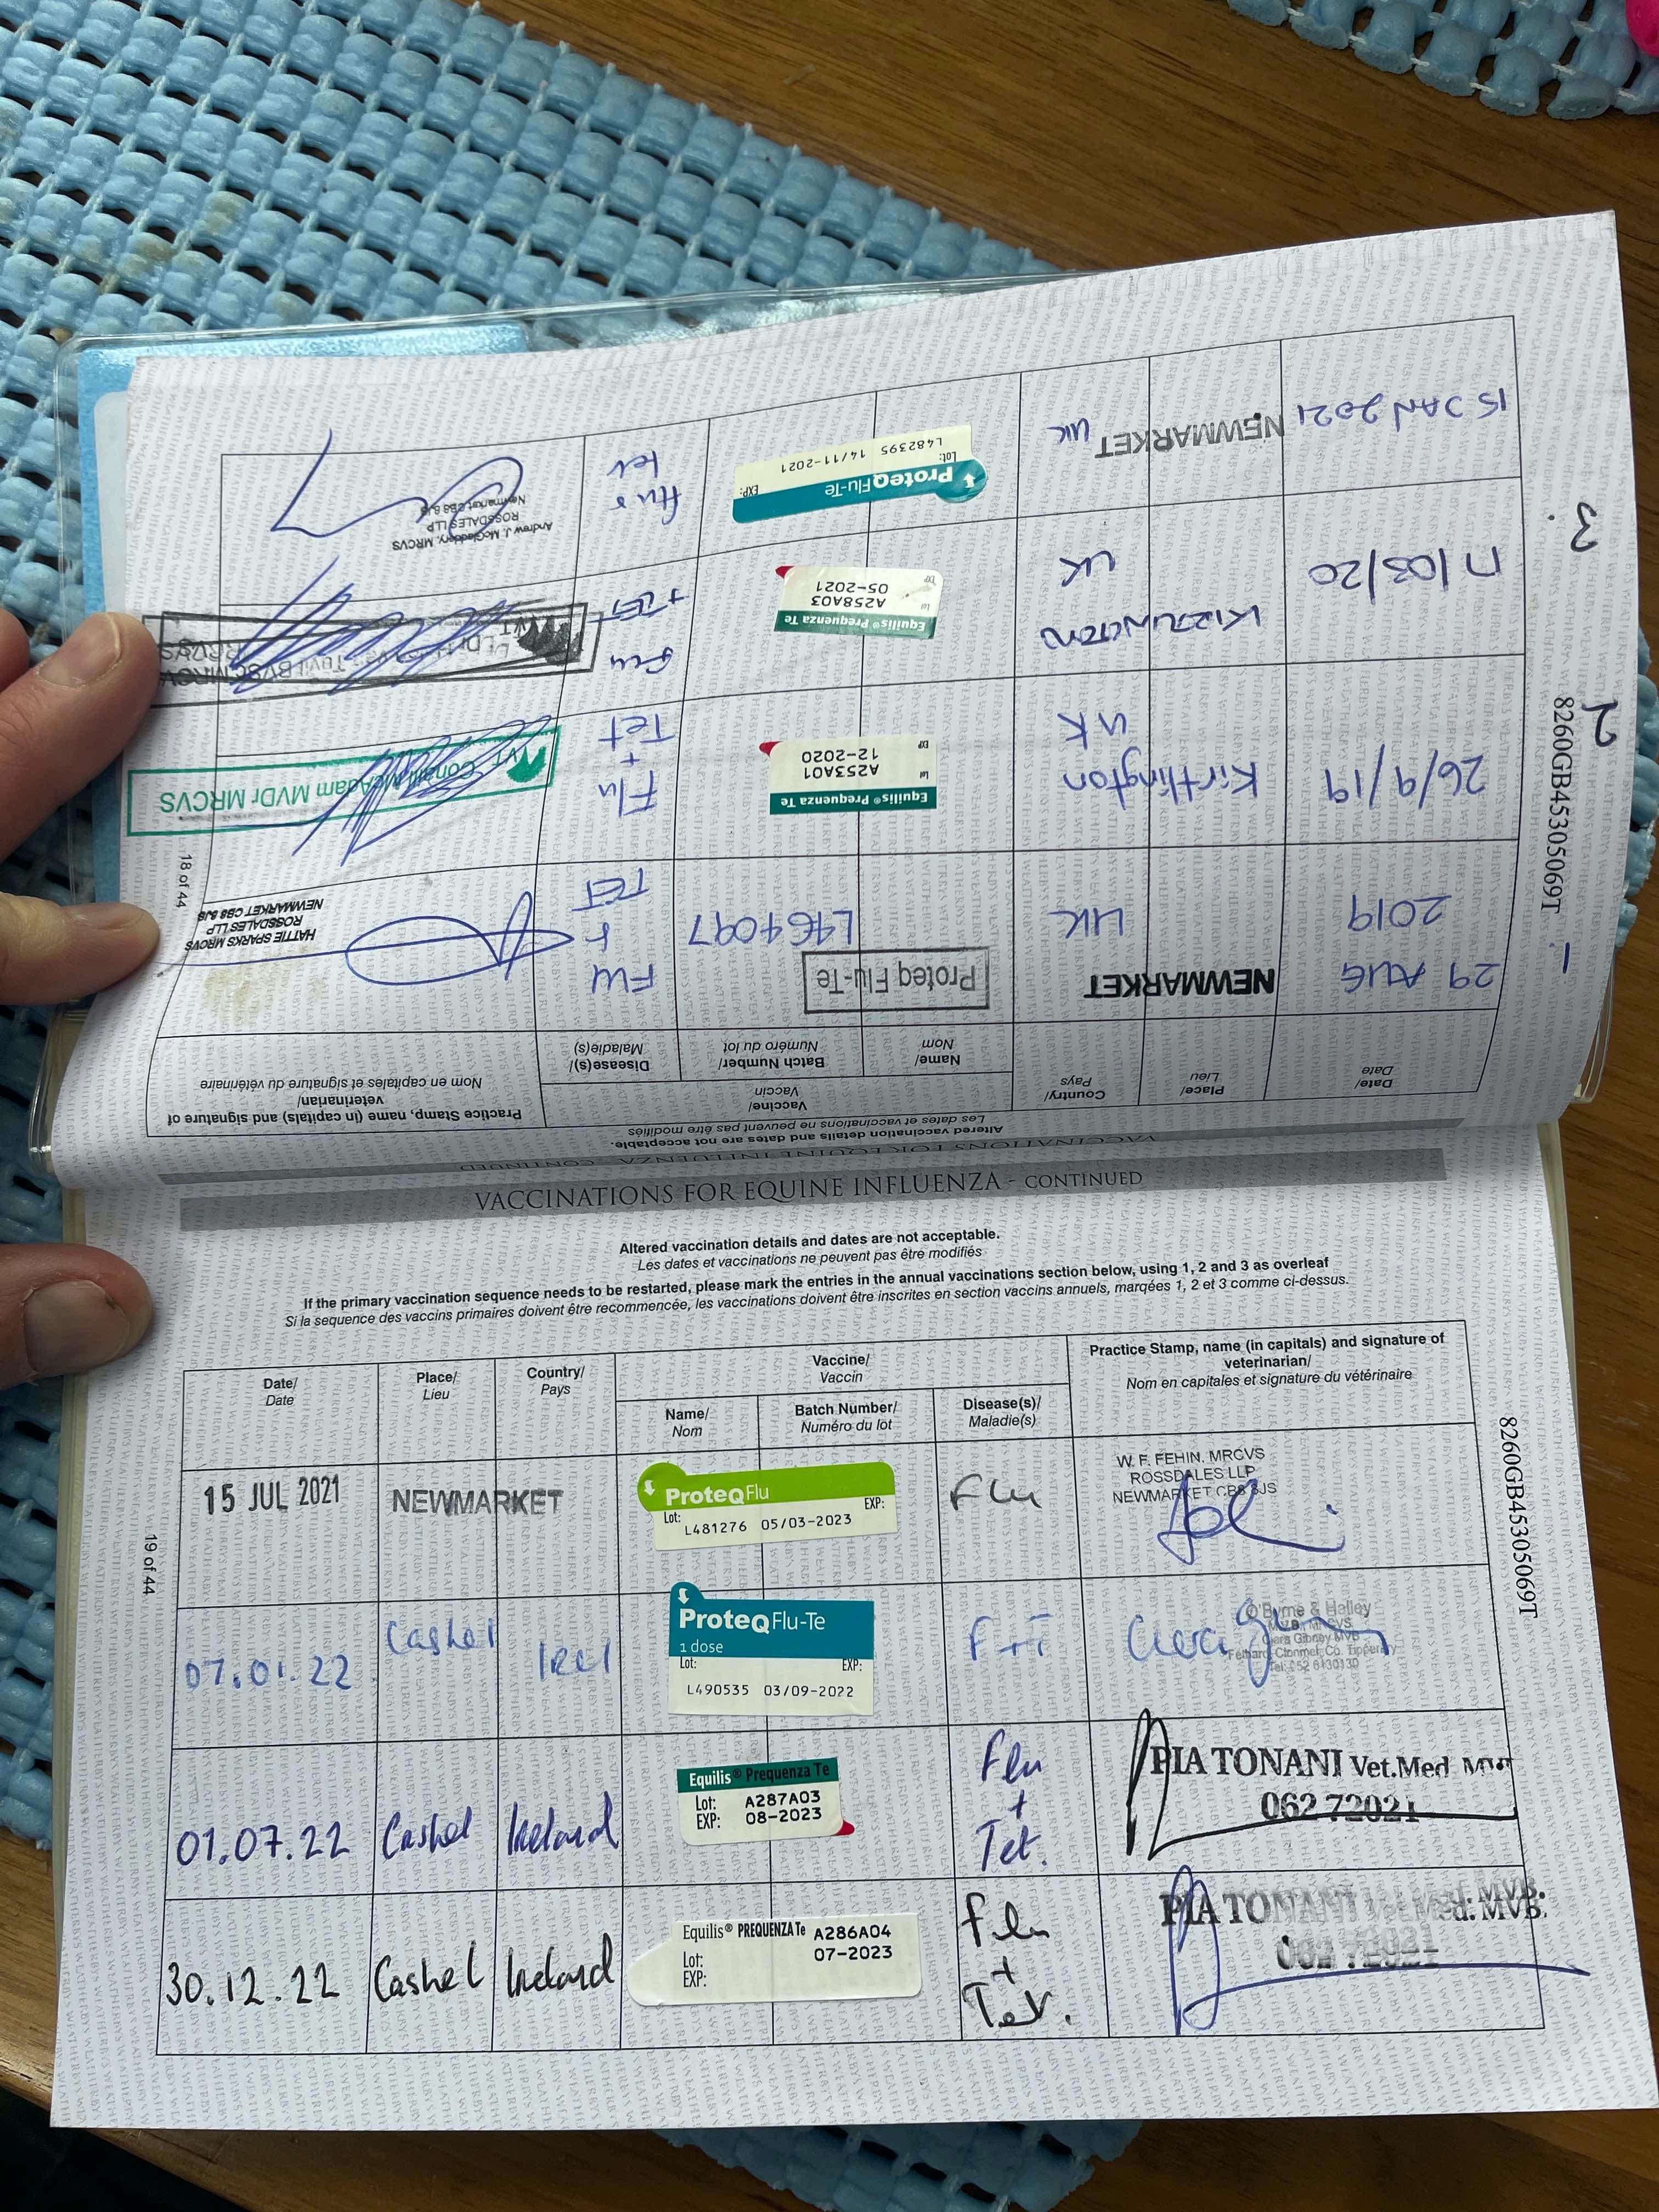 VACCINATIONS FOR EQUINE INFLUENZA - CONTINUED
Altered vaccination details and dates are not acceptable.
Les dates et vaccinations ne peuvent pas être modifiés
Date/
Date
Place/
Lieu
Country/
Pays
Vaccine/
Vaccin
Name/
Nom
Batch Number/
Numéro du lot
Disease(s)/
Maladie(s)
Practice Stamp, name (in capitals) and signature of
veterinarian/
Nom en capitales et signature du vétérinaire
1
29 AUG
2019
NEWMARKET
UK
Proteq Flu-Te
L464097
FLU
+
TET
HATTIE SPARKS MRCVS
ROSSDALES LLP
NEWMARKET CB8 8JS
2
26/9/19
Kirtlington
UK
Equilis® Prequenza Te
Lot A253A01
EXP 12-2020
Flu
+
Tet
Conall McAdam MVDr MRCVS
3
17/03/20
KIRTLINGTON
UK
Equilis® Prequenza Te
Lot A258A03
EXP 05-2021
Flu
+ TET
BVSc MRCVS
15 JAN 2021
NEWMARKET
UK
ProteqFlu-Te
Lot: EXP:
L482395 14/11-2021
flu &
tet
Andrew J. McGladdery, MRCVS
ROSSDALES LLP
Newmarket CB8 8JS
8260GB45305069T
18 of 44
VACCINATIONS FOR EQUINE INFLUENZA - CONTINUED
Altered vaccination details and dates are not acceptable.
Les dates et vaccinations ne peuvent pas être modifiés
If the primary vaccination sequence needs to be restarted, please mark the entries in the annual vaccinations section below, using 1, 2 and 3 as overleaf
Si la sequence des vaccins primaires doivent être recommencée, les vaccinations doivent être inscrites en section vaccins annuels, marqées 1, 2 et 3 comme ci-dessus.
Date/
Date
Place/
Lieu
Country/
Pays
Vaccine/
Vaccin
Name/
Nom
Batch Number/
Numéro du lot
Disease(s)/
Maladie(s)
Practice Stamp, name (in capitals) and signature of
veterinarian/
Nom en capitales et signature du vétérinaire
15 JUL 2021
NEWMARKET
ProteqFlu
Lot: EXP:
L481276 05/03-2023
Flu
W. F. FEHIN. MRCVS
ROSSDALES LLP
NEWMARKET CB8 8JS
07.01.22
Cashel
Irel
ProteqFlu-Te
1 dose
Lot: EXP:
L490535 03/09-2022
F+T
O'Byrne & Halley
Ciara Gibney MVB
Fethard, Clonmel, Co. Tipperary
Tel: 052 6130130
01.07.22
Cashel
Ireland
Equilis® Prequenza Te
Lot: A287A03
EXP: 08-2023
Flu
+
Tet.
PIA TONANI Vet.Med MVB
062 72021
30.12.22
Cashel
Ireland
Equilis® PREQUENZA Te A286A04
Lot: 07-2023
EXP:
Flu
+
Tet.
PIA TONANI Vet.Med. MVB.
062 72021
8260GB45305069T
19 of 44